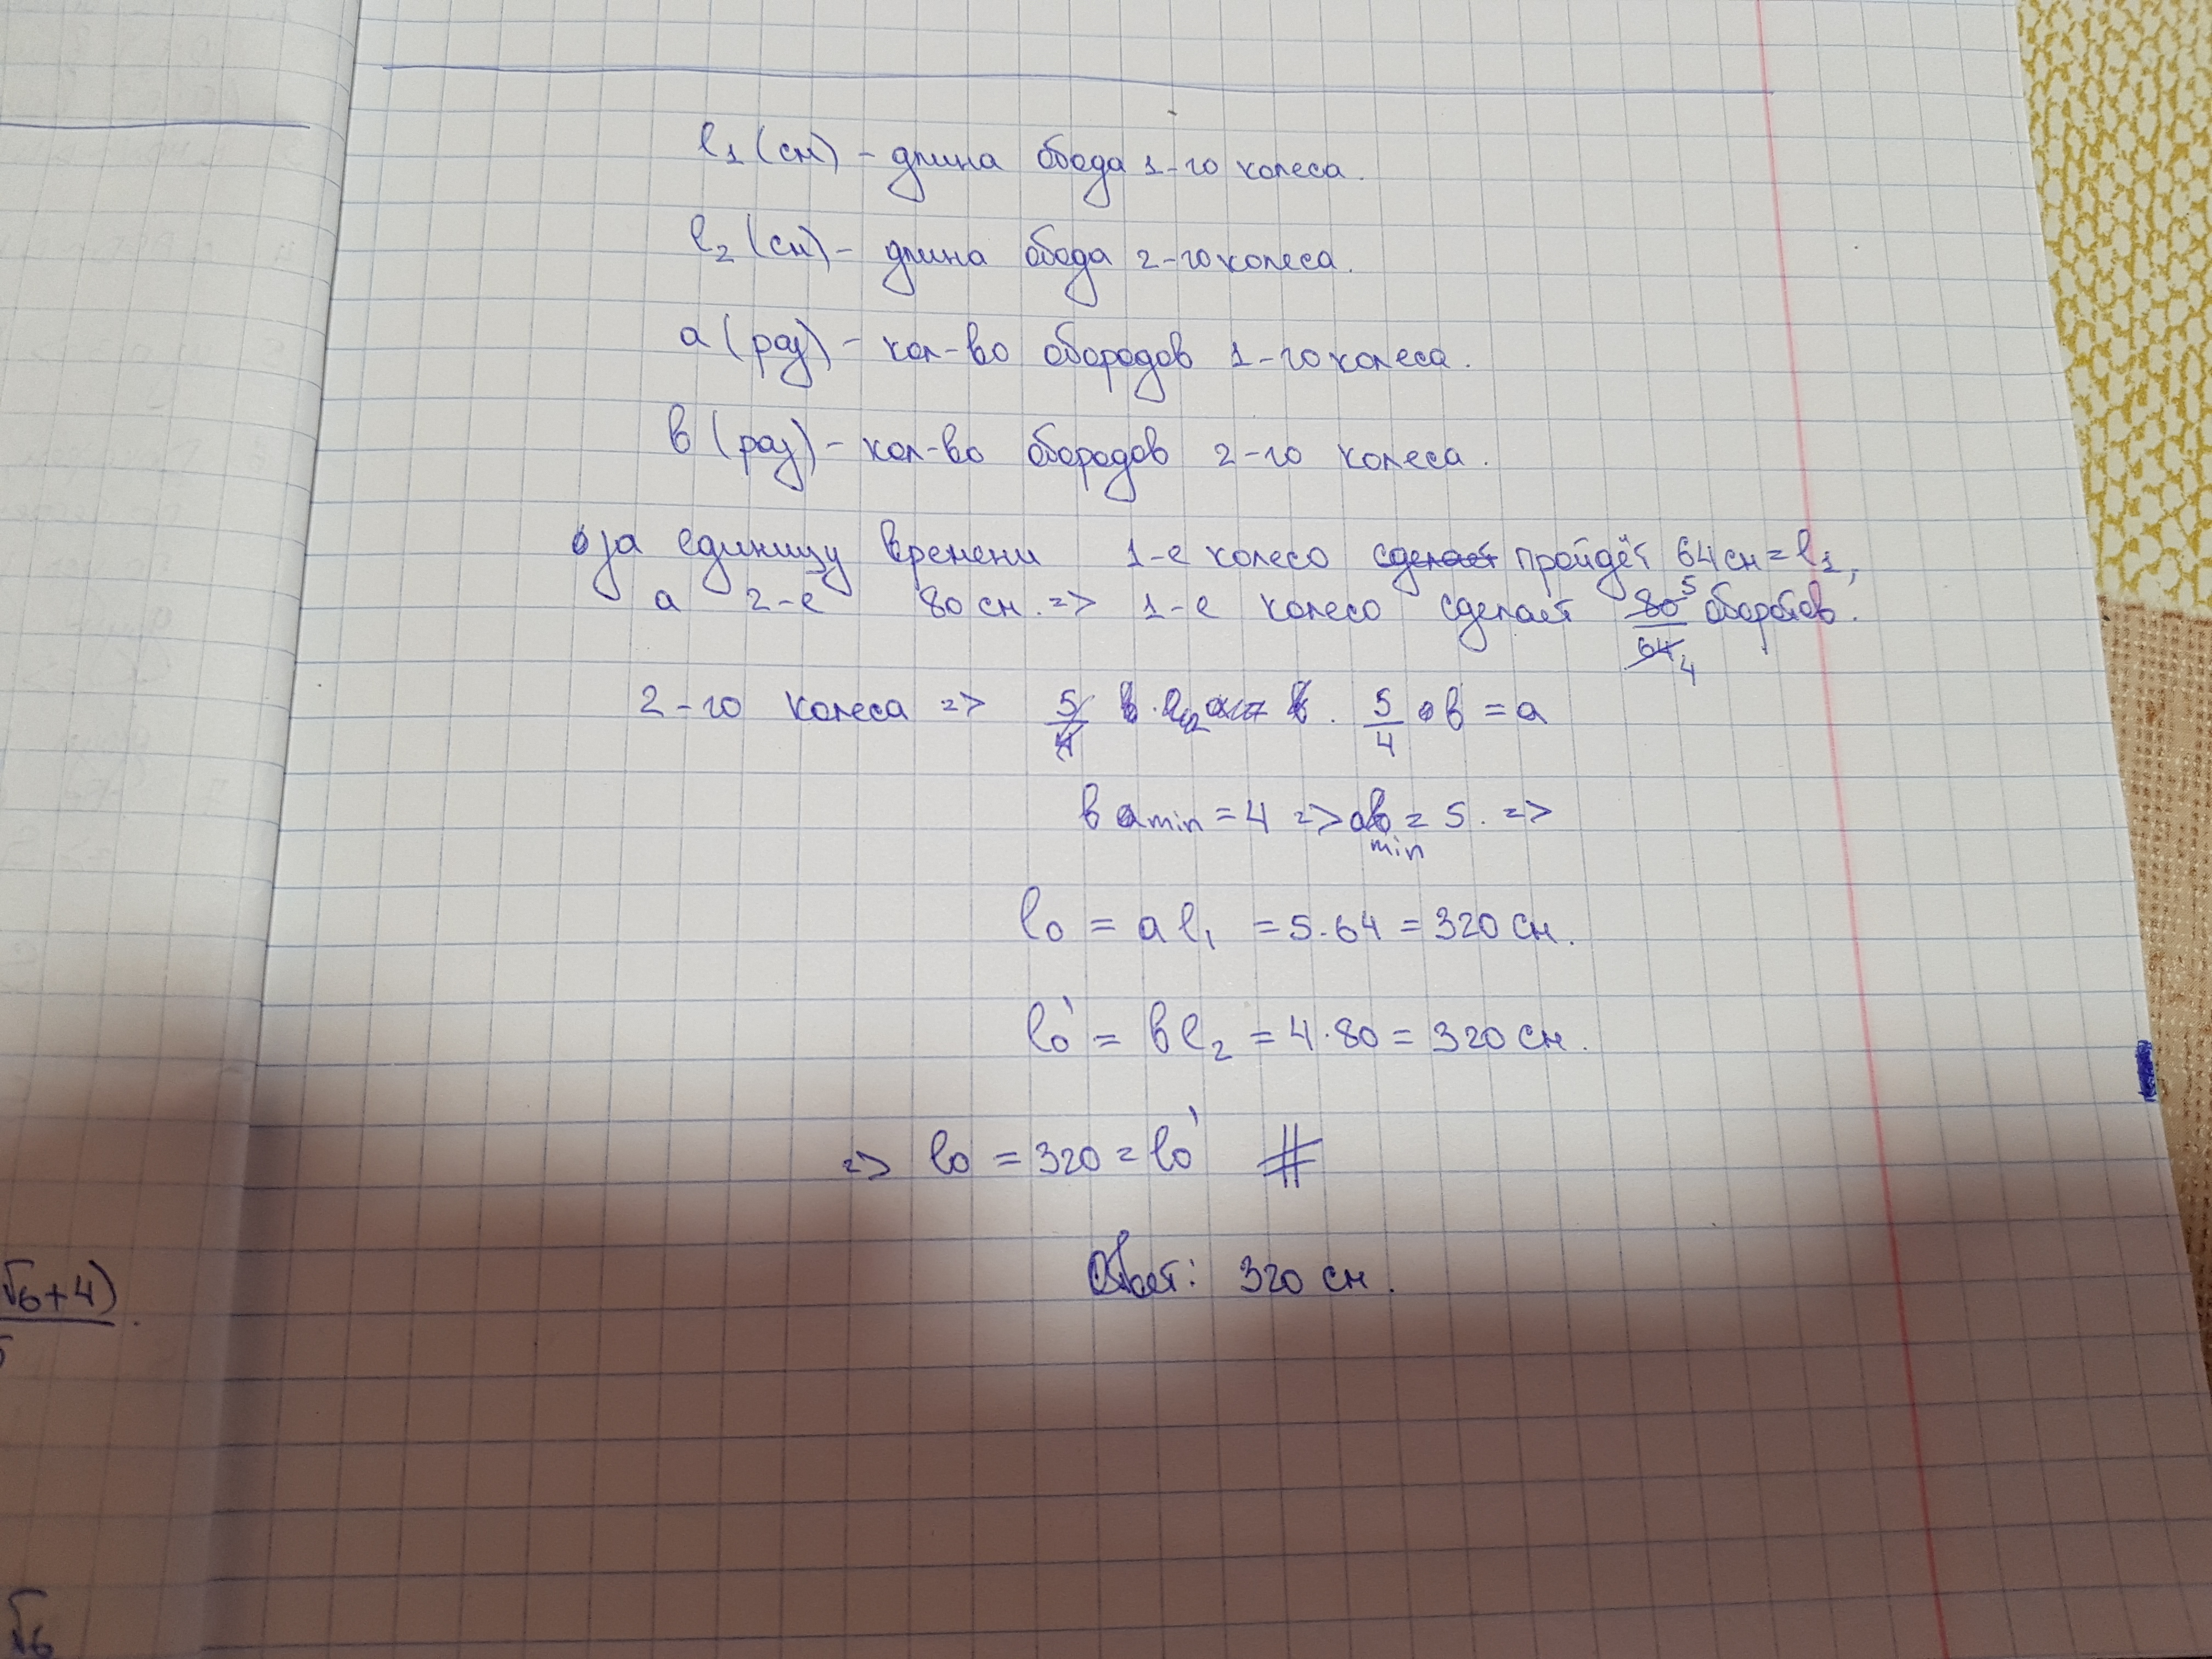 l₁ (см) - длина обода 1-го колеса.
l₂ (см) - длина обода 2-го колеса.
a (раз) - кол-во обородов 1-го колеса.
в (раз) - кол-во обородов 2-го колеса.
за единицу времени 1-е колесо сделает пройдёт 64 см = l₁,
а 2-е 80 см. => 1-е колесо сделает 80/64 5/4 оборотов.
2-го колеса => 5/4 в = a
в min = 4 => a min = 5. =>
l₀ = a l₁ = 5·64 = 320 см.
l₀' = в l₂ = 4·80 = 320 см.
=> l₀ = 320 = l₀' #
Ответ: 320 см.
√6+4)
√6